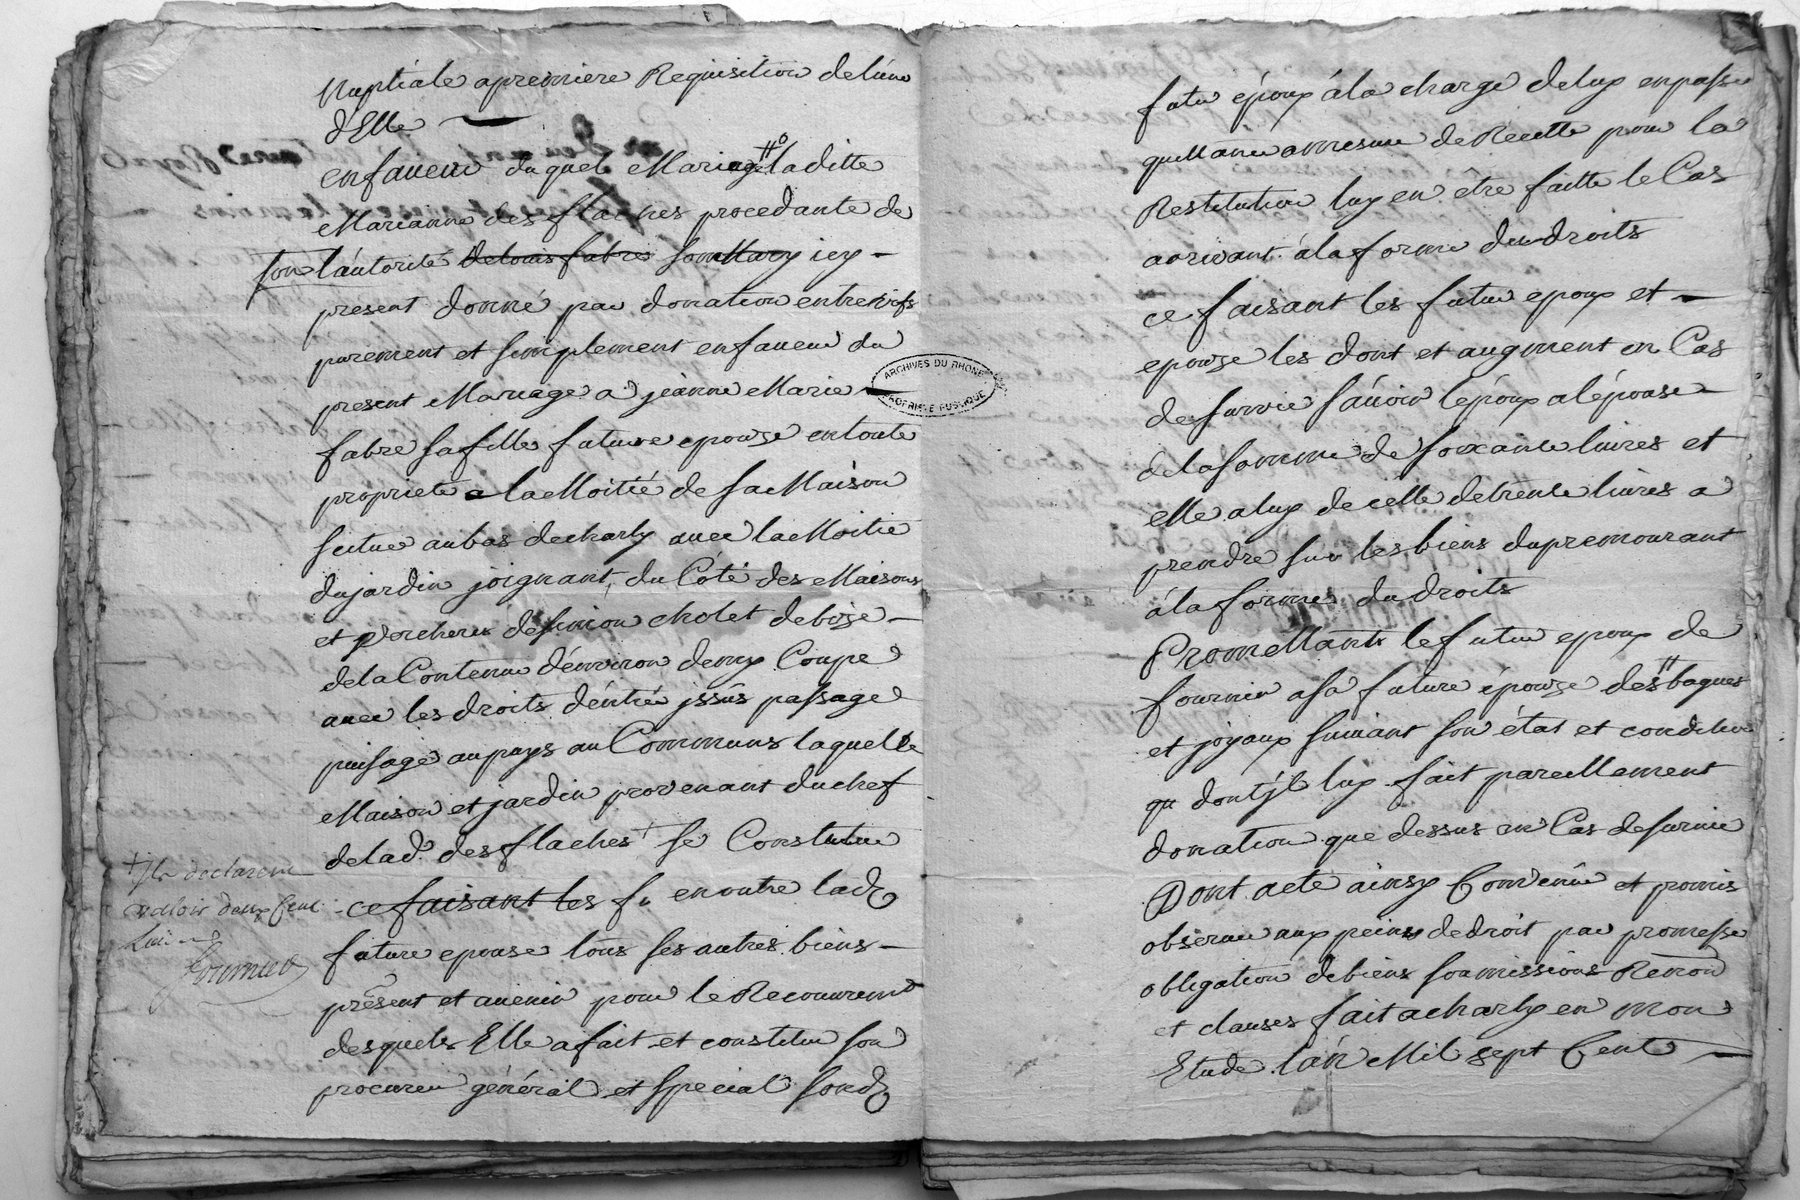 Nuptiale a premiere Requisition de lúne
d'Elle
en faueur duquel Mariage la ditte
Marianne des flaches procedante de
son l'áutorité de louis fabre son Mary icy
present donne par donation entre vifs
purement et simplement en faueur du
present Mariage a jeànne Marie
fabre sa fille future epouze en toute
proprieté la Moitié de sa Maison
scitueé au bas de charly auec la Moitie
du jardin joignant du Coté des Maisons
et porcheres de simon cholet de bize
de la Contenue d'énuiron demy Coupe
auec les droits d'éntreé jssús passage
puisage au puys au Communs laquelle
Maison et jardin provenant du chef
de lad. des flaches + se Constitue
ce faisant les f. en outre lad.
future epouse tous ses autres biens
présent et auenir pour le Recouurem.t
desquels Elle a fait et constitue son
procureur général et special sond.
+ jls declarent
valloir deux Cent
Liures
fournier
ARCHIVES DU RHONE
PROPRIETE PUBLIQUE
futur époux á la charge de luy en passer
quittance a mesure de Recette pour la
Restitution luy en être faitte le Cas
arrivant á la forme des droits
ce faisant les futur epoux et
epouze les dont et augment en Cas
de suruie sáuoir l'époux a l'épouse
de la somme de soixante liures et
elle a luy de celle de trente liures a
prendre sur les biens du premourant
á la forme du droits
Promettant le futur epoux de
fournir a sa future épouze des bagues
et joyaux suiuant son état et condition
qu dont jl luy fait pareillement
donation que dessus en Cas de suruie
Dont acte ainsy Conuenu et promis
obseruer aux peines de droit par promesse
obligation de biens soumissions Renon
et clauses fait a charly en mon
Etude l'án Mil sept Cent